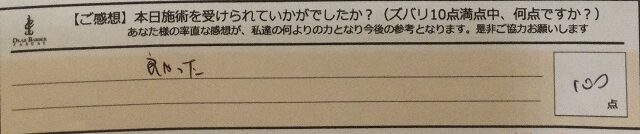 【ご感想】本日施術を受けられていかがでしたか？（ズバリ10点満点中、何点ですか？）
あなた様の率直な感想が、私達の何よりの力となり今後の参考となります。是非ご協力お願いします
DEAR BARBER
良かった
100
点